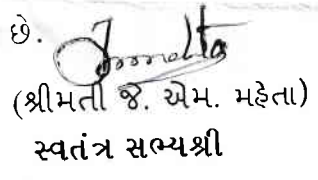 છે.
(શ્રીમતી જે. એમ. મહેતા)
સ્વતંત્ર સભ્યશ્રી